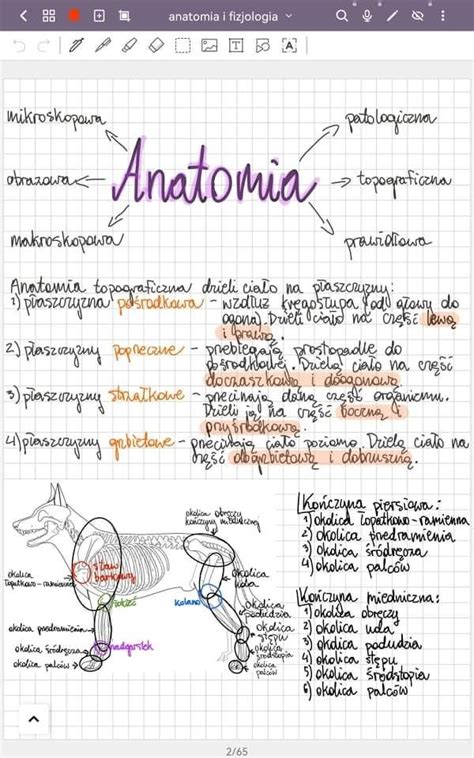 anatomia i fizjologia
mikroskopowa
patologiczna
obrazowa
Anatomia
topograficzna
makroskopowa
prawidłowa
Anatomia topograficzna dzieli ciało na płaszczyzny:
1) płaszczyzna pośrodkowa - wzdłuż kręgosłupa (od głowy do
ogona). Dzieli ciało na część lewą
i prawą.
2) płaszczyzny poprzeczne - przebiegają prostopadle do
pośrodkowej. Dzielą ciało na część
doczaszkową i doogonową.
3) płaszczyzny strzałkowe - przecinają daną część organizmu.
Dzieli ją na część boczną i
przyśrodkową.
4) płaszczyzny grzbietowe - przecinają ciało poziomo. Dzielą ciało na
część dogrzbietową i dobrzuszną.
okolica obręczy
kończyny miednicznej
staw
barkowy
okolica
łopatkowo-ramienna
okolica
uda
łokieć
kolano
okolica
podudzia
okolica przedramienia
okolica
stępu
nadgarstek
okolica śródręcza
okolica
śródstopia
okolica palców
okolica
palców
Kończyna piersiowa:
1) okolica łopatkowo-ramienna
2) okolica przedramienia
3) okolica śródręcza
4) okolica palców
Kończyna miedniczna:
1) okolica obręczy
2) okolica uda
3) okolica podudzia
4) okolica stępu
5) okolica śródstopia
6) okolica palców
2/65